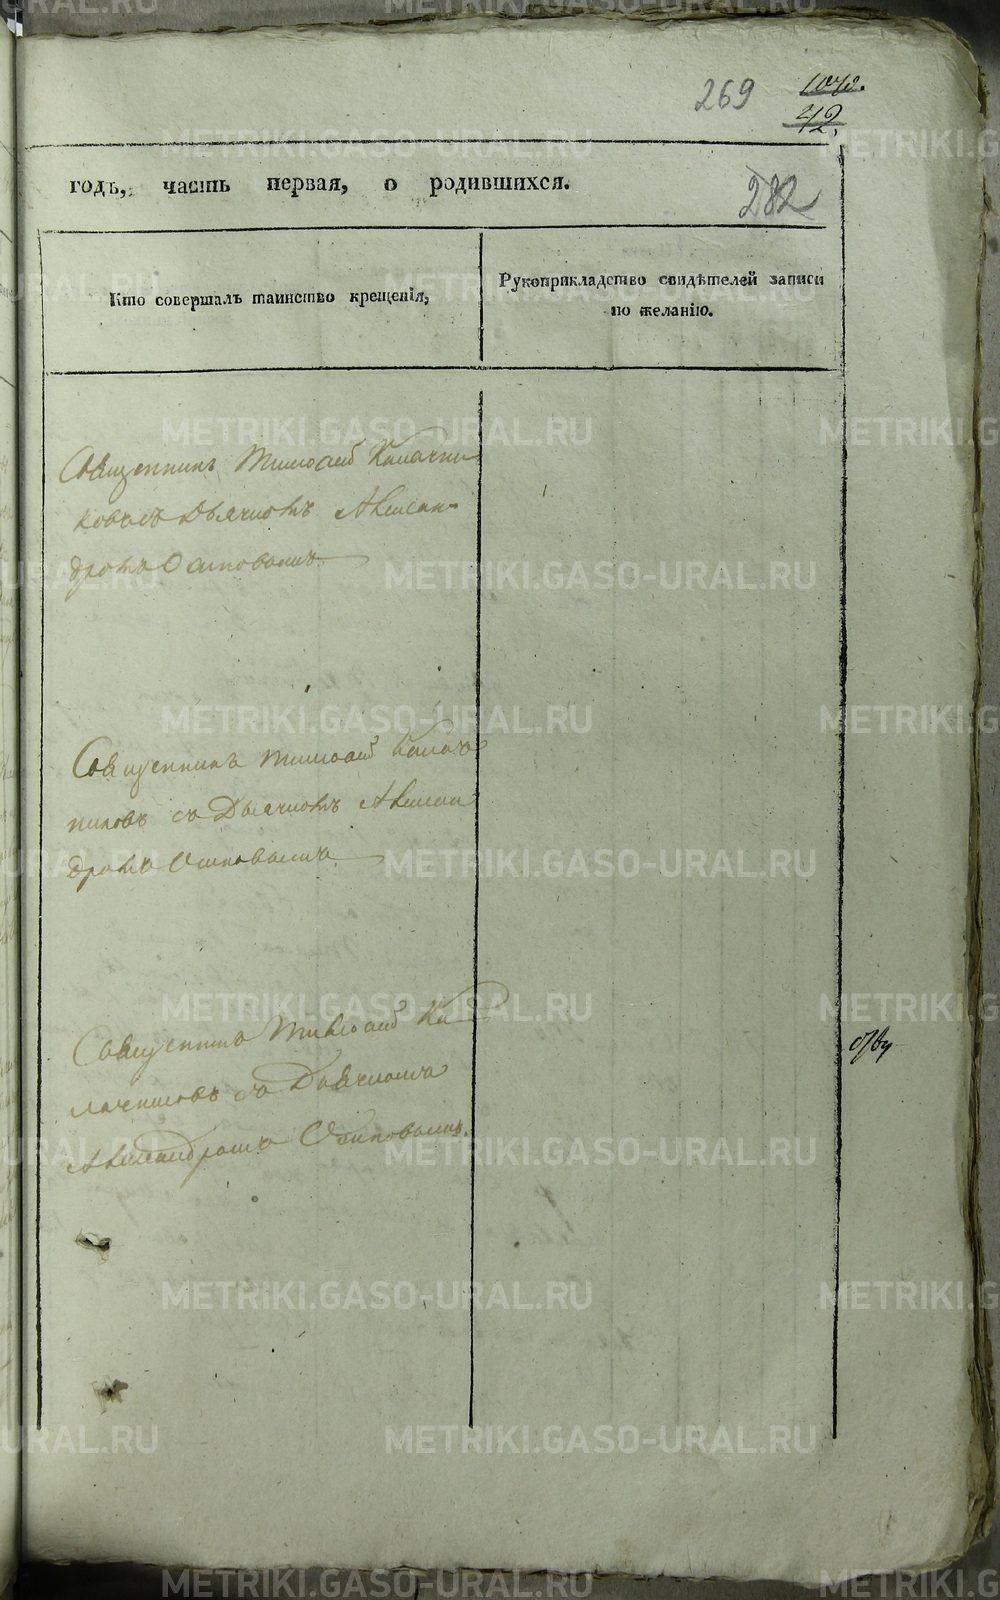 269
1078.
42.
годъ, часть первая, о родившихся.
282
Кто совершалъ таинство крещенія,
Рукоприкладство свидѣтелей записи
по желанію.
Священникъ Тимофей Калачни
ковъ съ Дьячкомъ Алексан-
дромъ Осиповымъ
Священникъ Тимофей Калач
никовъ съ Дьячкомъ Алексан
дромъ Осиповымъ
Священникъ Тимофей Ка
лачниковъ съ Дьячкомъ
Александромъ Осиповымъ.
METRIKI.GASO-URAL.RU